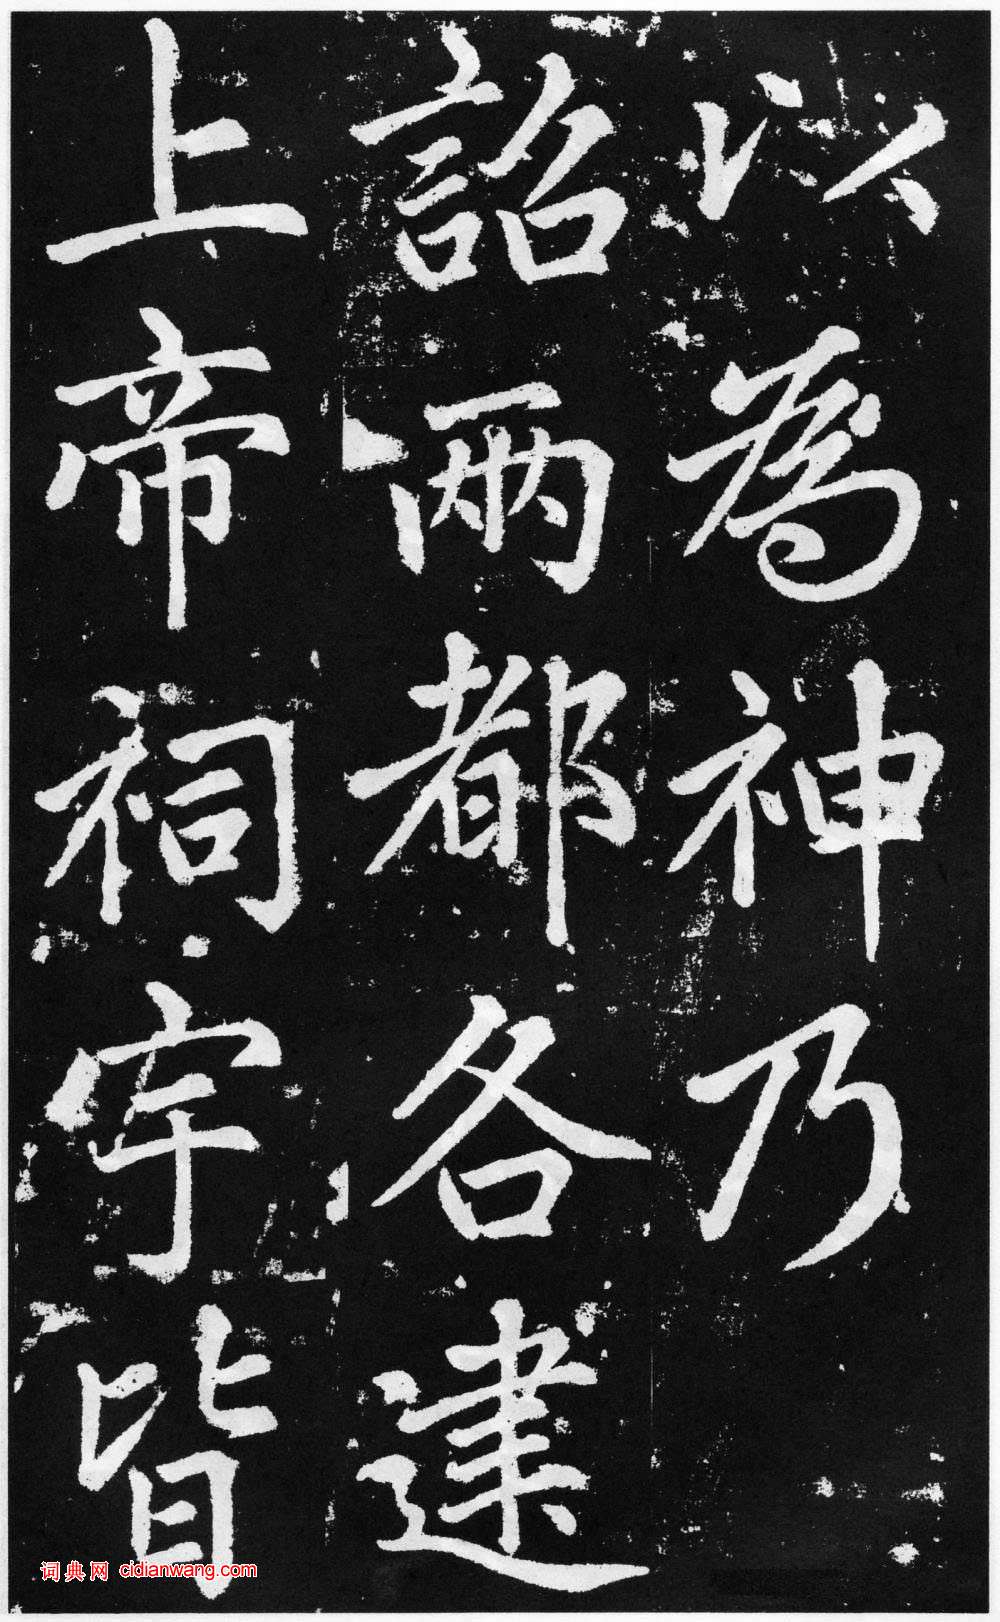 以為神乃
詔兩都各建
上帝祠宇皆
词典网 cidianwang.com